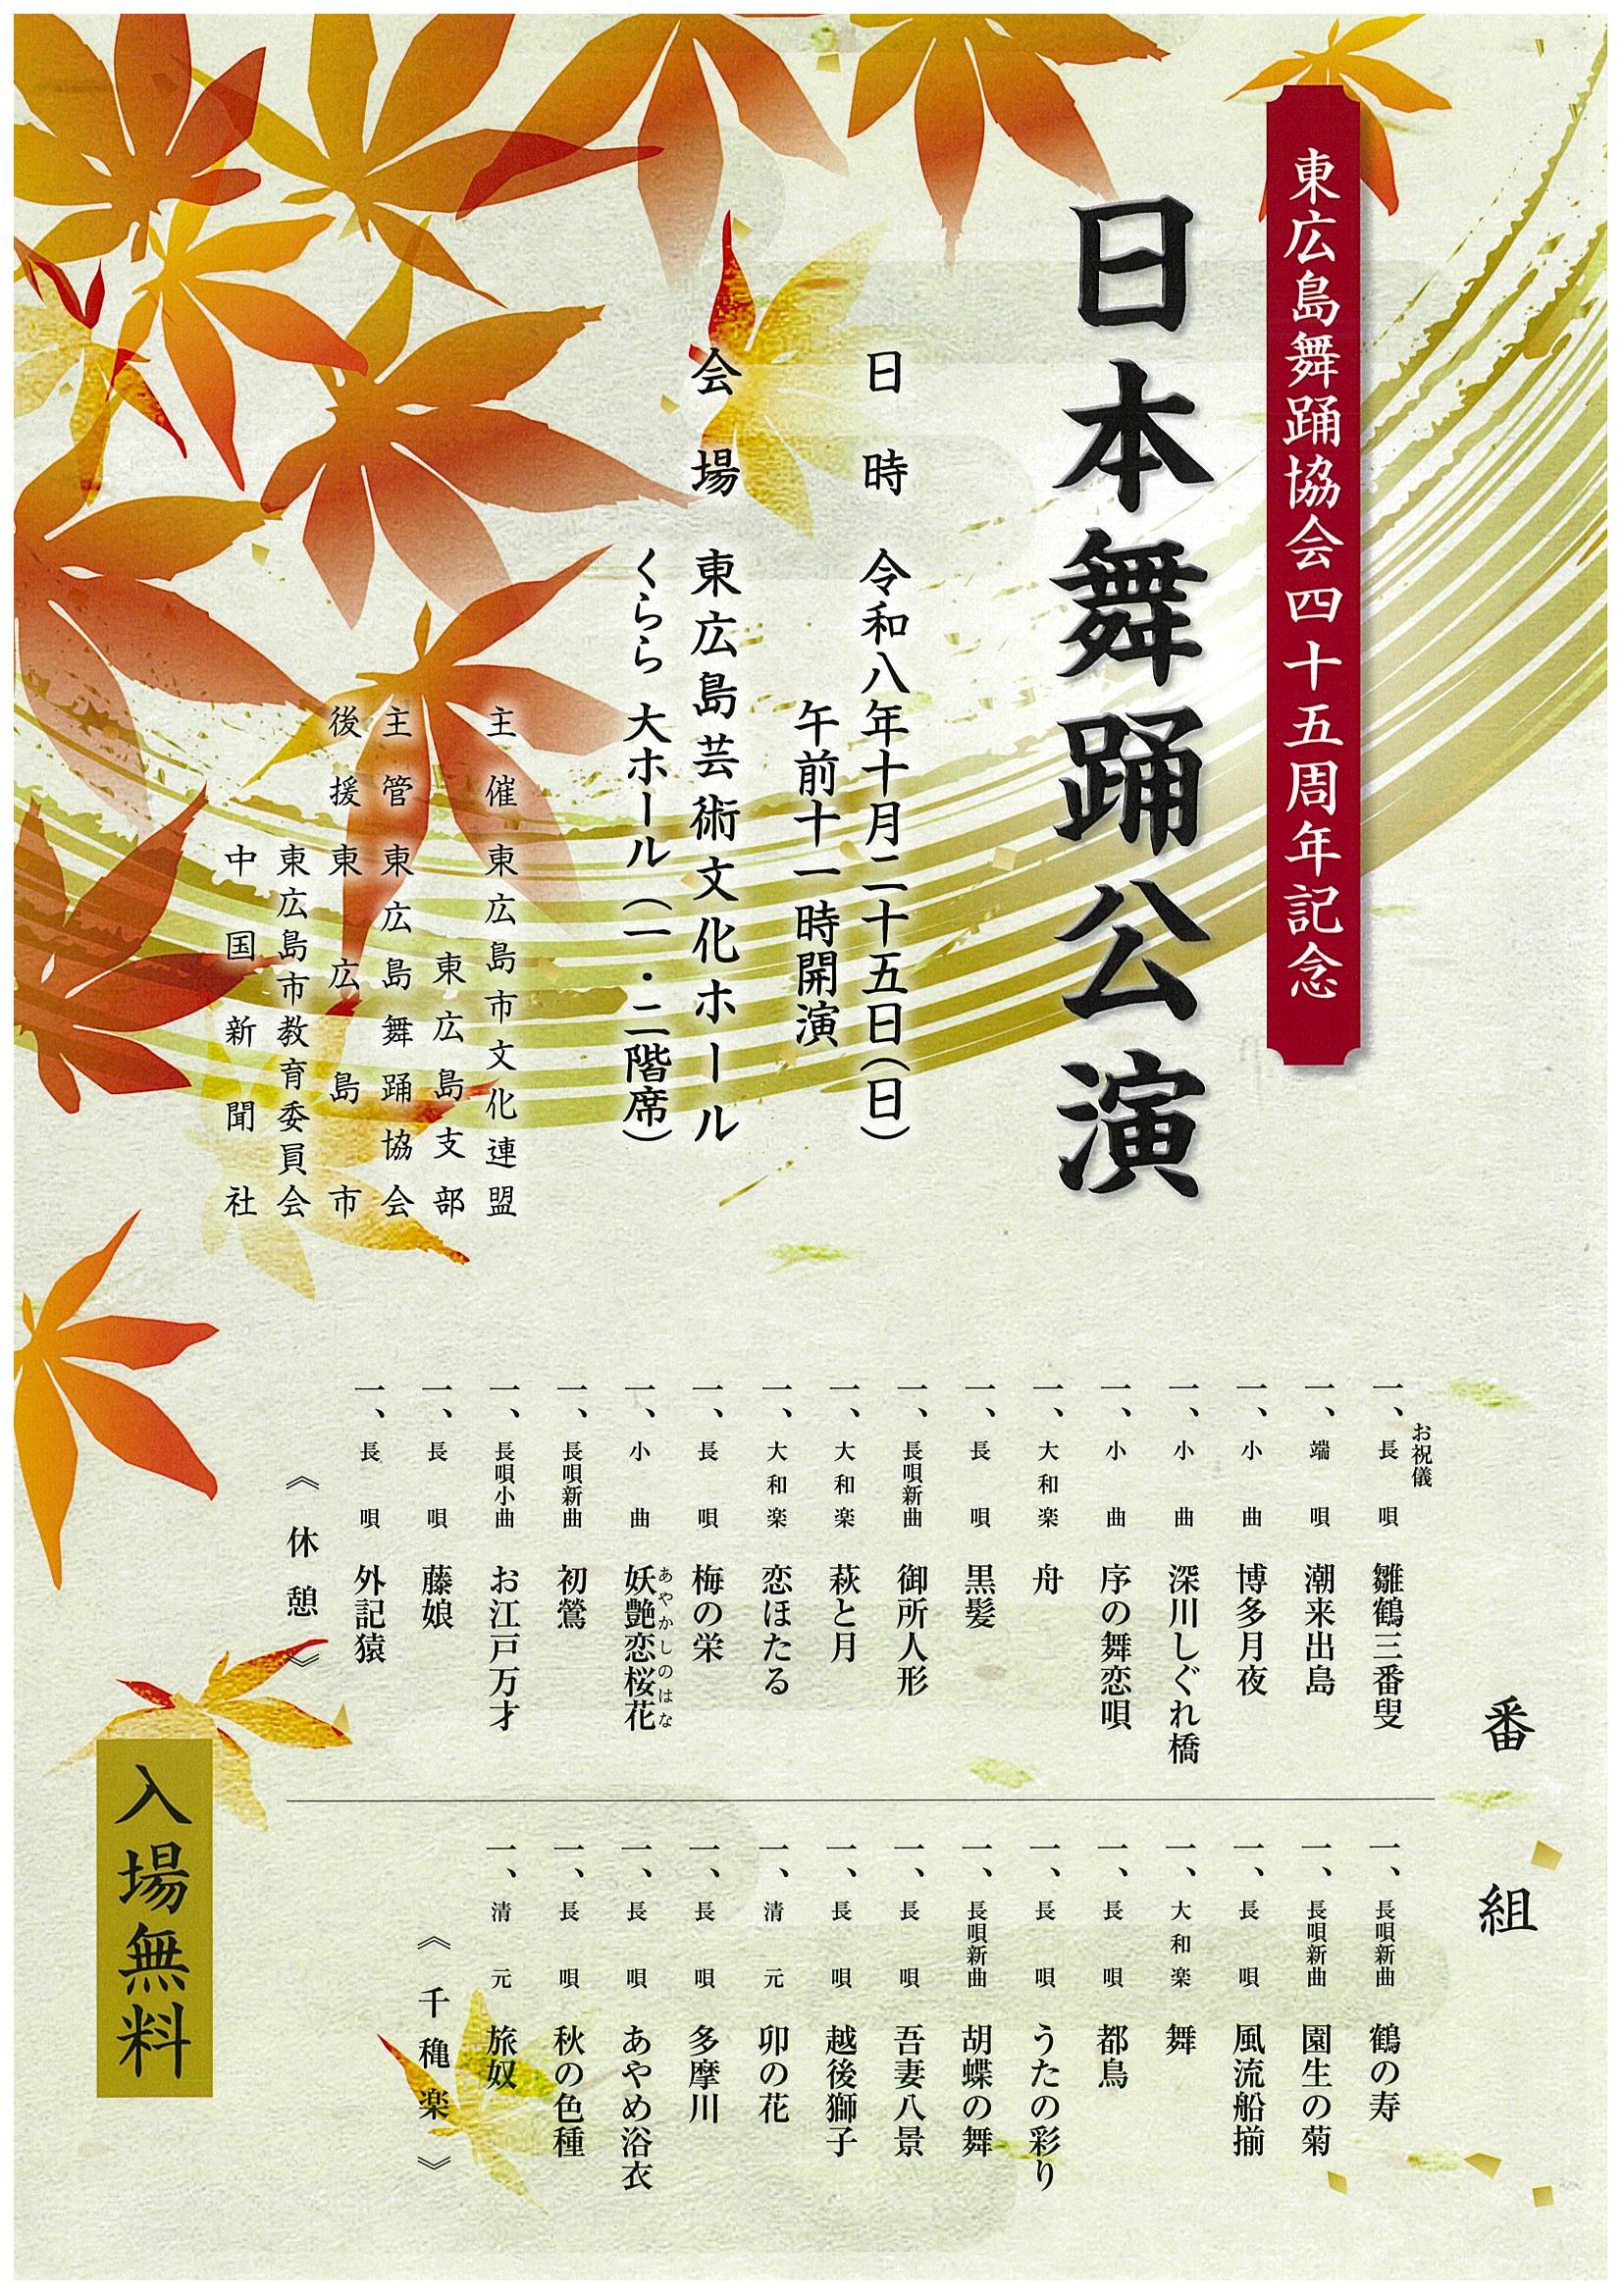 東広島舞踊協会四十五周年記念
日本舞踊公演
日時 令和八年十月二十五日(日)
午前十一時開演
会場 東広島芸術文化ホール
くらら 大ホール(一・二階席)
主催 東広島市文化連盟
東広島支部
主管 東広島舞踊協会
後援 東広島市
東広島市教育委員会
中国新聞社
番組
お祝儀
一、長唄 雛鶴三番叟
一、端唄 潮来出島
一、小曲 博多月夜
一、小曲 深川しぐれ橋
一、小曲 序の舞恋唄
一、大和楽 舟
一、長唄 黒髪
一、長唄新曲 御所人形
一、大和楽 萩と月
一、大和楽 恋ほたる
一、長唄 梅の栄
あやかしのはな
一、小曲 妖艶恋桜花
一、長唄新曲 初鶯
一、長唄小曲 お江戸万才
一、長唄 藤娘
一、長唄 外記猿
《休憩》
一、長唄新曲 鶴の寿
一、長唄新曲 園生の菊
一、長唄 風流船揃
一、大和楽 舞
一、長唄 都鳥
一、長唄 うたの彩り
一、長唄新曲 胡蝶の舞
一、長唄 吾妻八景
一、長唄 越後獅子
一、清元 卯の花
一、長唄 多摩川
一、長唄 あやめ浴衣
一、長唄 秋の色種
一、清元 旅奴
《千穐楽》
入場無料